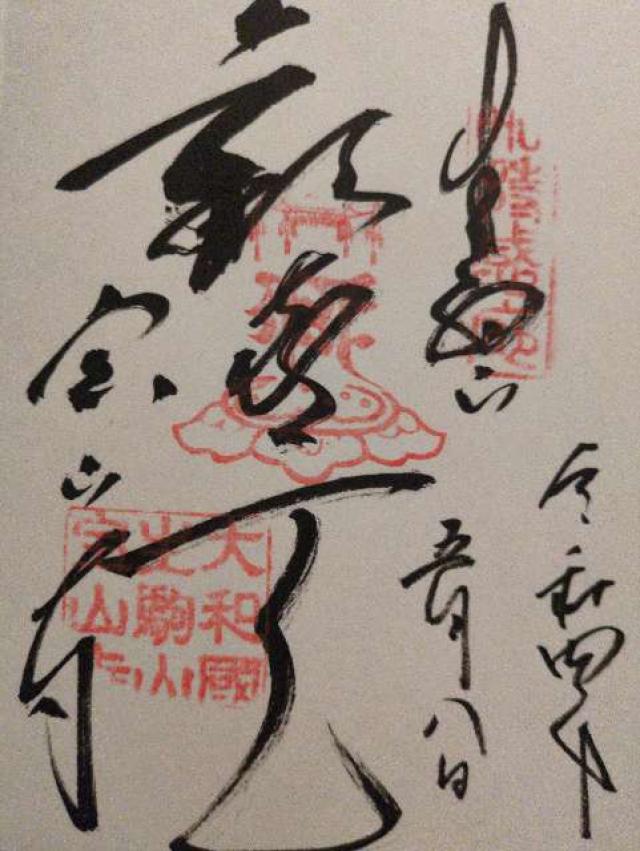 生駒山
令和四年
五月八日
歓喜天
宝山寺
大和國
生駒山
宝山寺